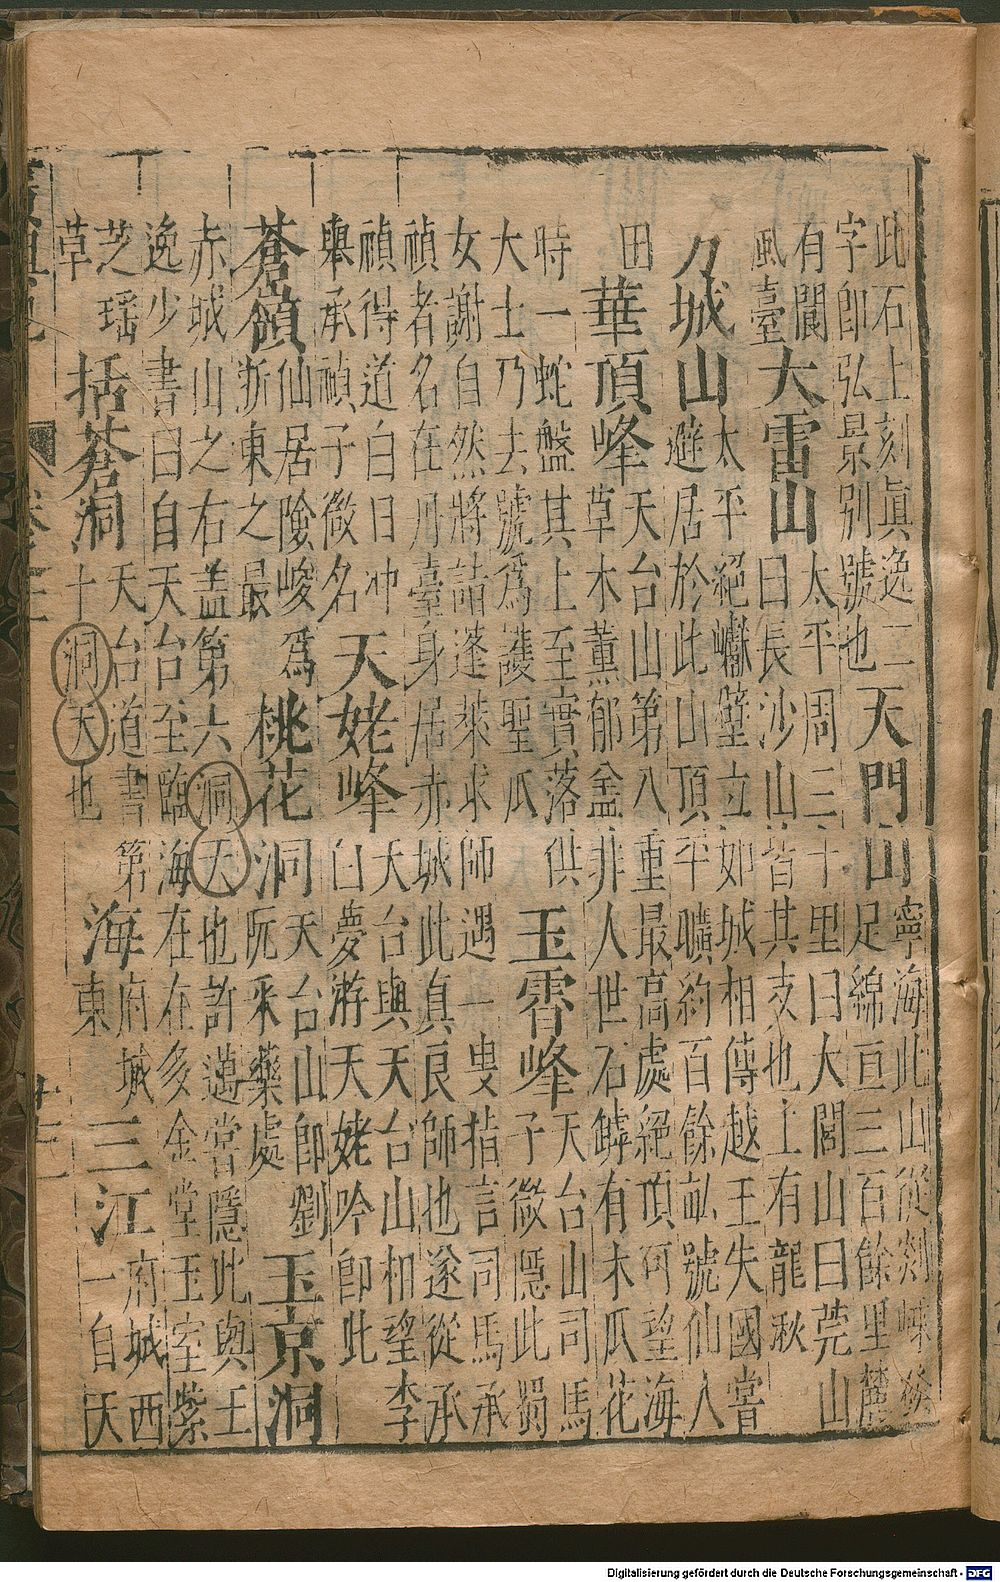 此石上刻眞逸二
字卽弘景别號也
天門山
寧海此山從剡嵊發
足綿亘三百餘里麓
有閬
風臺
大雷山
太平周三十里曰大閣山曰莞山
曰長沙山皆其支也上有龍湫
方城山
太平絕巘壁立如城相傳越王失國嘗
避居於此山頂平曠約百餘畝號仙人
田
華頂峰
天台山第八重最高處絕頂可望海
草木薰郁盆非人世石罅有木瓜花
時一蛇盤其上至實落供
大士乃去號爲護聖瓜
玉霄峰
天台山司馬
子微隱此蜀
女謝自然將詣蓬萊求師遇一叟指言司馬承
禎者名在丹臺身居赤城此真良師也遂從承
禎得道白日冲
舉承禎子微名
天姥峰
天台與天台山相望李
白夢游天姥吟卽此
蒼嶺
仙居險峻爲
浙東之最
桃花洞
天台山卽劉
阮采藥處
玉京洞
赤城山之右盖第六洞天也許邁嘗隱此與王
逸少書曰自天台至臨海在在多金堂玉室紫
芝瑶
草
括蒼洞
天台道書第
十洞天也
海
府城
東
三江
府城西
一自天
Digitalisierung gefördert durch die Deutsche Forschungsgemeinschaft - DFG